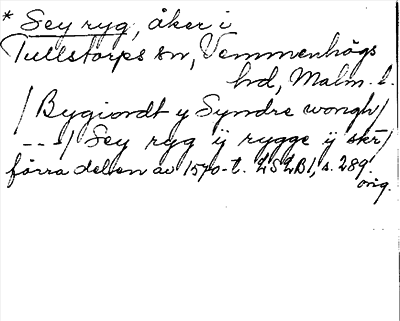 * Sey ryg, åker i
Tullstorps sn, Vemmenhögs
hd, Malm. l.
/ Bygiordt y Syndre wongh /
---/ Sey ryg ÿ rygge ÿ skr /
förra delen av 1570-t. LSLB1, s. 289.
orig.